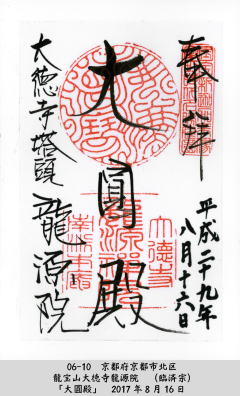 奉拝
平成二十九年
八月十六日
大圓殿
大徳寺
龍源禅院
大徳寺塔頭
龍源院
06-10 京都府京都市北区
龍宝山大徳寺龍源院 (臨済宗)
「大圓殿」 2017年8月16日